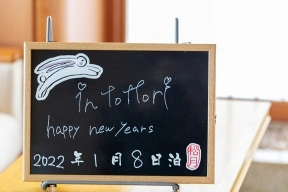 in tottori
happy new years
2022年1月8日泊
松月